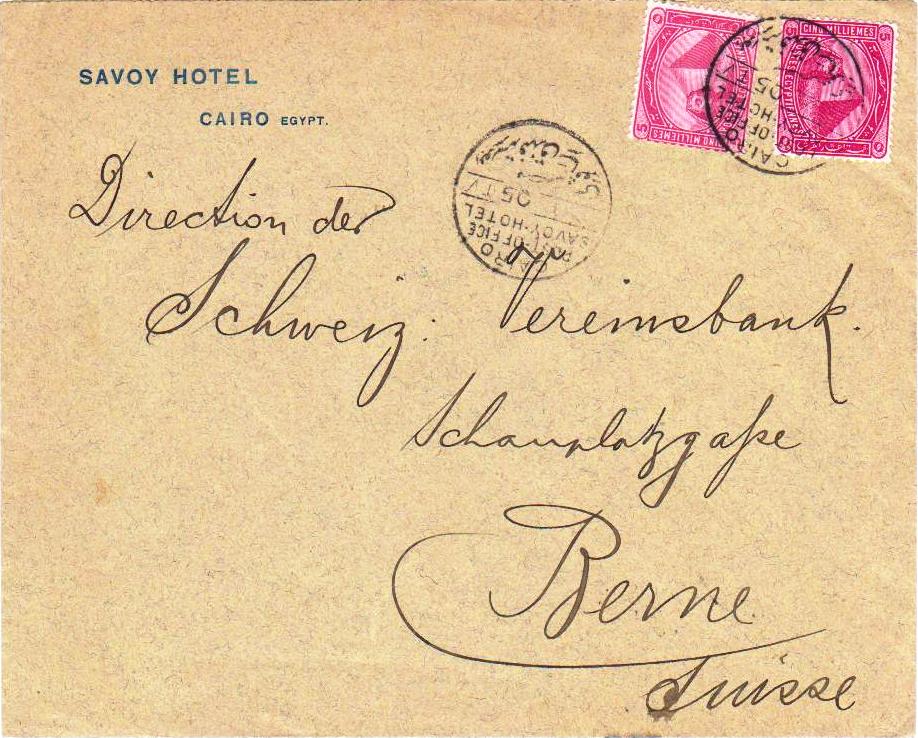 SAVOY HOTEL
CAIRO EGYPT.
CINQ MILLIEMES
5 5
POSTES EGYPTIENNES
5
CINQ MILLIEMES
5
CAIRO
POST-OFFICE
SAVOY-HOTEL
05
CAIRO
POST-OFFICE
SAVOY-HOTEL
05
Direction der
Schweiz: Vereinsbank.
Schauplatzgaße
Berne
Suisse